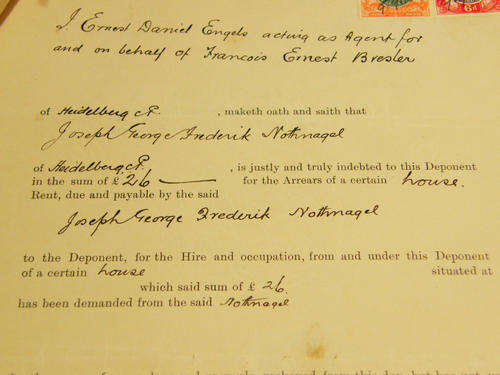 I Ernest Daniel Engels acting as Agent for
and on behalf of Francois Ernest Bresler
of Heidelberg C.P. , maketh oath and saith that
Joseph George Frederik Nothnagel
of Heidelberg C.P. , is justly and truly indebted to this Deponent
in the sum of £ 26 — for the Arrears of a certain house.
Rent, due and payable by the said
Joseph George Frederik Nothnagel
to the Deponent, for the Hire and occupation, from and under this Deponent
of a certain house situated at
which said sum of £ 26.
has been demanded from the said Nothnagel